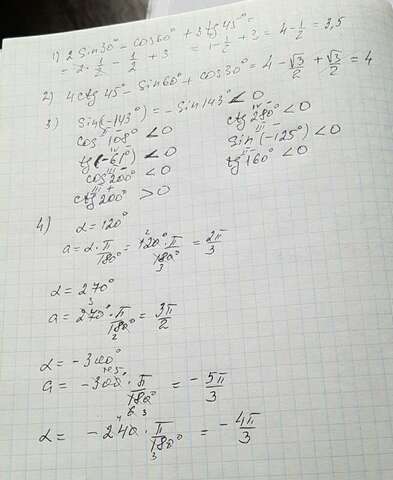 1) 2 sin 30° - cos 60° + 3 tg 45° =
= 2·1/2 - 1/2 + 3 = 1 - 1/2 + 3 = 4 - 1/2 = 3,5
2) 4 ctg 45° - sin 60° + cos 30° = 4 - √3/2 + √3/2 = 4
3) sin(-143°) = - sin 143° < 0
cos 108° < 0 ctg 280° < 0
tg(-61°) < 0 sin(-125°) < 0
cos 200° < 0 tg 160° < 0
ctg 200° > 0
4) α = 120°
a = α·π/180° = 120°·π/180° = 2π/3
α = 270°
a = 270°·π/180° = 3π/2
α = -300°
a = -300·π/180° = -5π/3
α = -240·π/180° = -4π/3